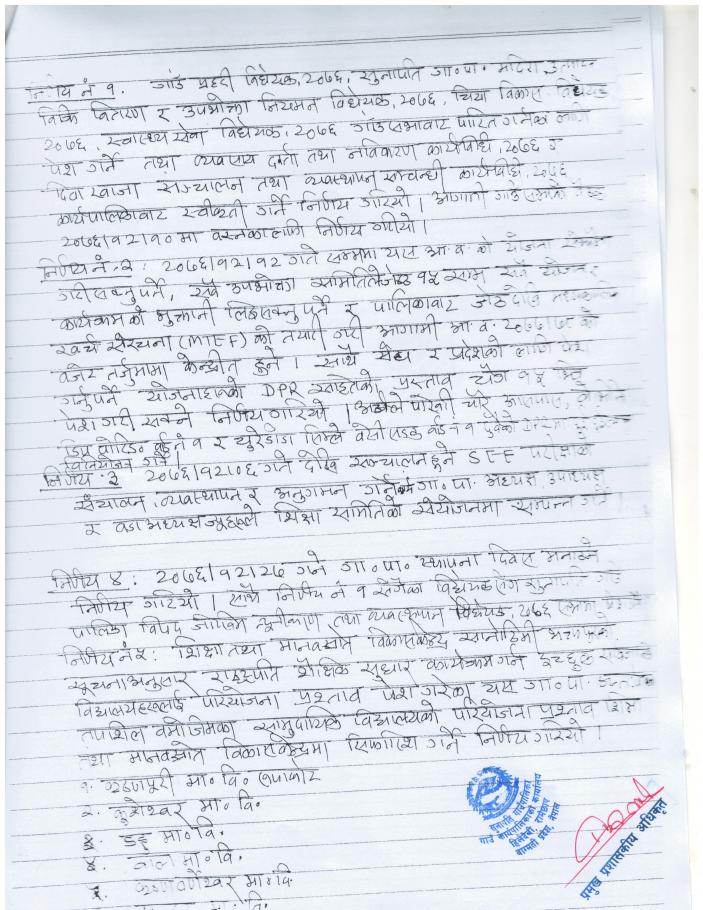 निर्णय नं १. गाउँ प्रहरी विधेयक, २०७६, सुनापति गा॰पा॰ मदिरा उत्पादन
विक्रि वितरण र उपभोक्ता नियमन विधेयक, २०७६, चिया विकास विधेयक
२०७६, स्वास्थ्य सेवा विधेयक, २०७६ गाउँसभाबाट पारित गर्नका लागि
पेश गर्ने तथा व्यवसाय दर्ता तथा नविकरण कार्यविधी, २०७६ र
दिवा खाजा सञ्चालन तथा व्यवस्थापन सम्बन्धी कार्यविधी, २०७६
कार्यपालिकाबाट स्वीकृती गर्ने निर्णय गरियो । आगामी गाउँ सभाको बैठक
२०७६/१२/१० मा बस्नका लागि निर्णय गरियो ।
निर्णय नं-२ : २०७६/१२/१२ गते सम्ममा यस आ.व. को योजना
गरीसक्नुपर्ने, सबै उपभोक्ता समितिले १५ सम्म सबै योजना
कार्यक्रमको भुक्तानी लिइसक्नुपर्ने र पालिकाबाट
खर्च संरचना (MTEF) को तयारी गरी आगामी आ.व. २०७७/७८ को
बजेट तर्जुमामा केन्द्रीत हुने । साथै संघ र प्रदेशको लागि पेश
गर्नुपर्ने योजनाहरुको DPR सहितको प्रस्ताव चैत्र १५ भित्र
पेश गरी सक्ने निर्णय गरियो ।
वडा नं १ र
विनियोजन गर्ने ।
निर्णय ३ २०७६/१२/०६ गते देखि सञ्चालन हुने SEE परीक्षाको
संचालन, व्यवस्थापन र अनुगमन गर्नको गा॰पा॰ अध्यक्ष, उपाध्यक्ष
र वडा अध्यक्षज्यूहरुले शिक्षा समितिको संयोजनमा सम्पन्न गर्ने ।
निर्णय ४ : २०७६/१२/२७ गते गा॰पा॰ स्थापना दिवस मनाउने
निर्णय गरियो । साथै निर्णय नं १ संगैका विधेयक संग सुनापति गाउँ
पालिका विपद जोखिम न्यूनीकरण तथा व्यवस्थापन विधेयक, २०७६
निर्णय नं ५ : शिक्षा तथा मानवस्रोत विकास केन्द्र सानोठिमी भक्तपुरको
सूचना अनुसार राष्ट्रपति शैक्षिक सुधार कार्यक्रम गर्न इच्छुक
विद्यालयहरुलाई परियोजना प्रस्ताव पेश गरेका यस गा॰पा॰
तपशिल बमोजिमका सामुदायिक विद्यालयको परियोजना प्रस्ताव शिक्षा
तथा मानवस्रोत विकास केन्द्रमा सिफारिश गर्ने निर्णय गरियो ।
१. मा॰ वि॰
२. कुशेश्वर मा॰ वि॰
३. मा॰वि॰
४. मा॰वि॰
५. मा॰वि॰
मा॰ वि॰
सुनापति गाउँपालिका
गाउँ कार्यपालिकाको कार्यालय
हिलेदेवी, रामेछाप
बागमती प्रदेश, नेपाल
प्रमुख प्रशासकीय अधिकृत